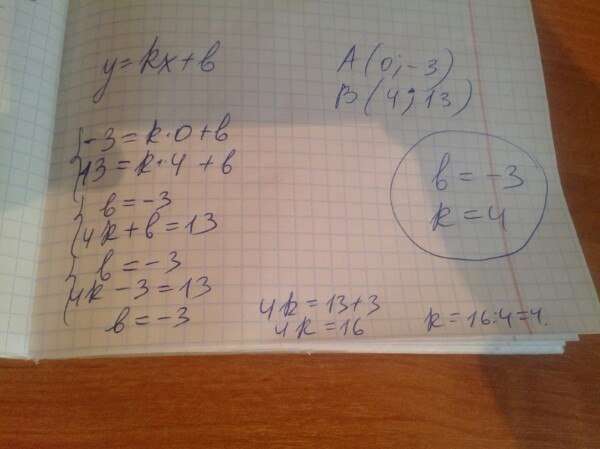 y = kx + b
A (0; -3)
B (4; 13)
-3 = k·0 + b
13 = k·4 + b
b = -3
4k + b = 13
b = -3
4k - 3 = 13
b = -3
4k = 13 + 3
4k = 16
k = 16:4 = 4.
b = -3
k = 4